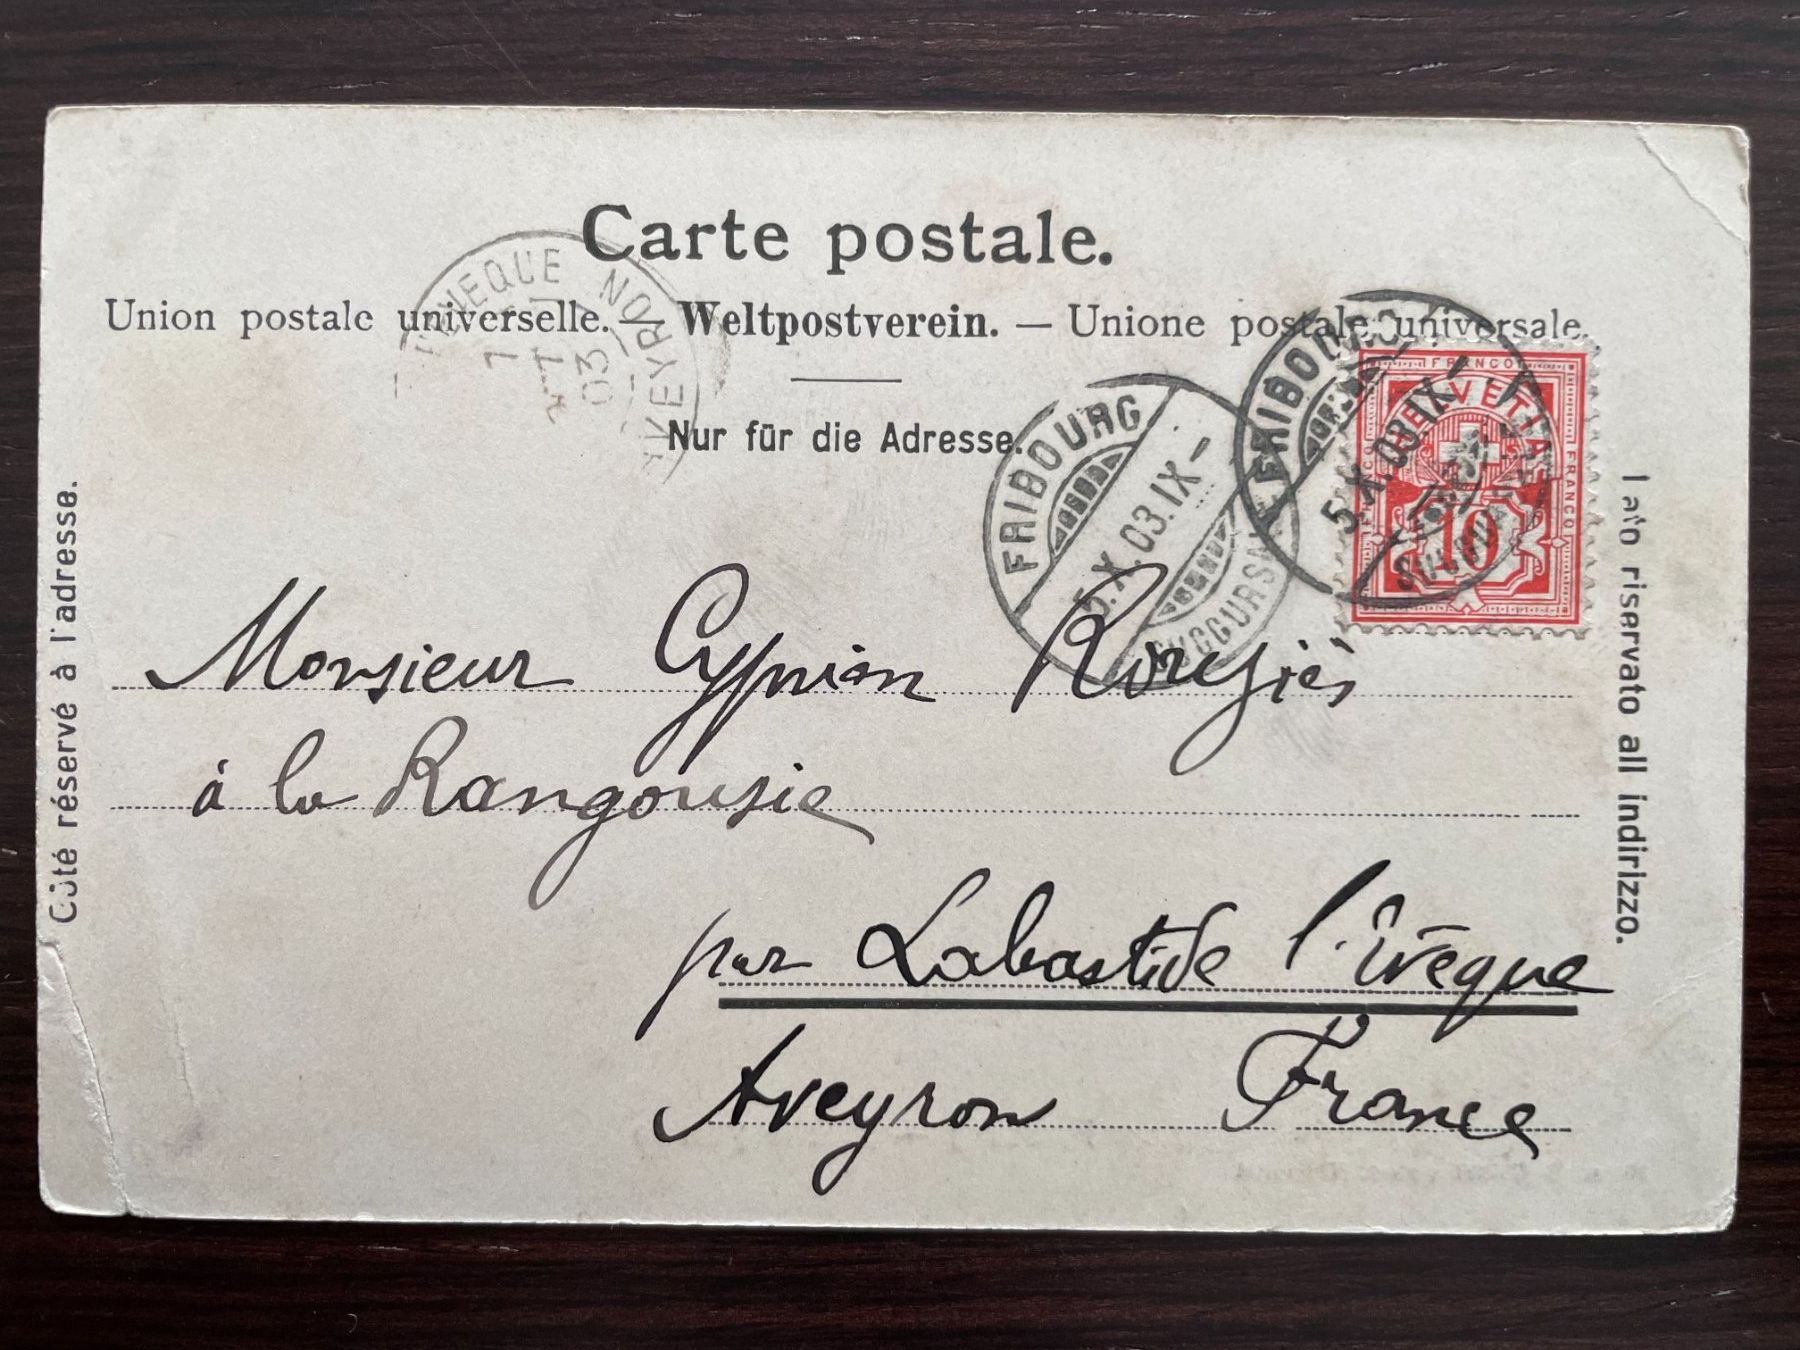 Carte postale.
Union postale universelle. — Weltpostverein. — Unione postale universale.
Nur für die Adresse.
Côté réservé à l'adresse.
Lato riservato all indirizzo.
EVEQUE AVEYRON
7
OCT
03
FRIBOURG
5.X.03.IX-
SUCCURSALE
FRIBOURG
5.X.03.IX-
SUCCURSALE
FRANCO
HELVETIA
FRANCO
FRANCO
10
Monsieur Cyprien
à la
par Labastide l'Evêque
Aveyron France